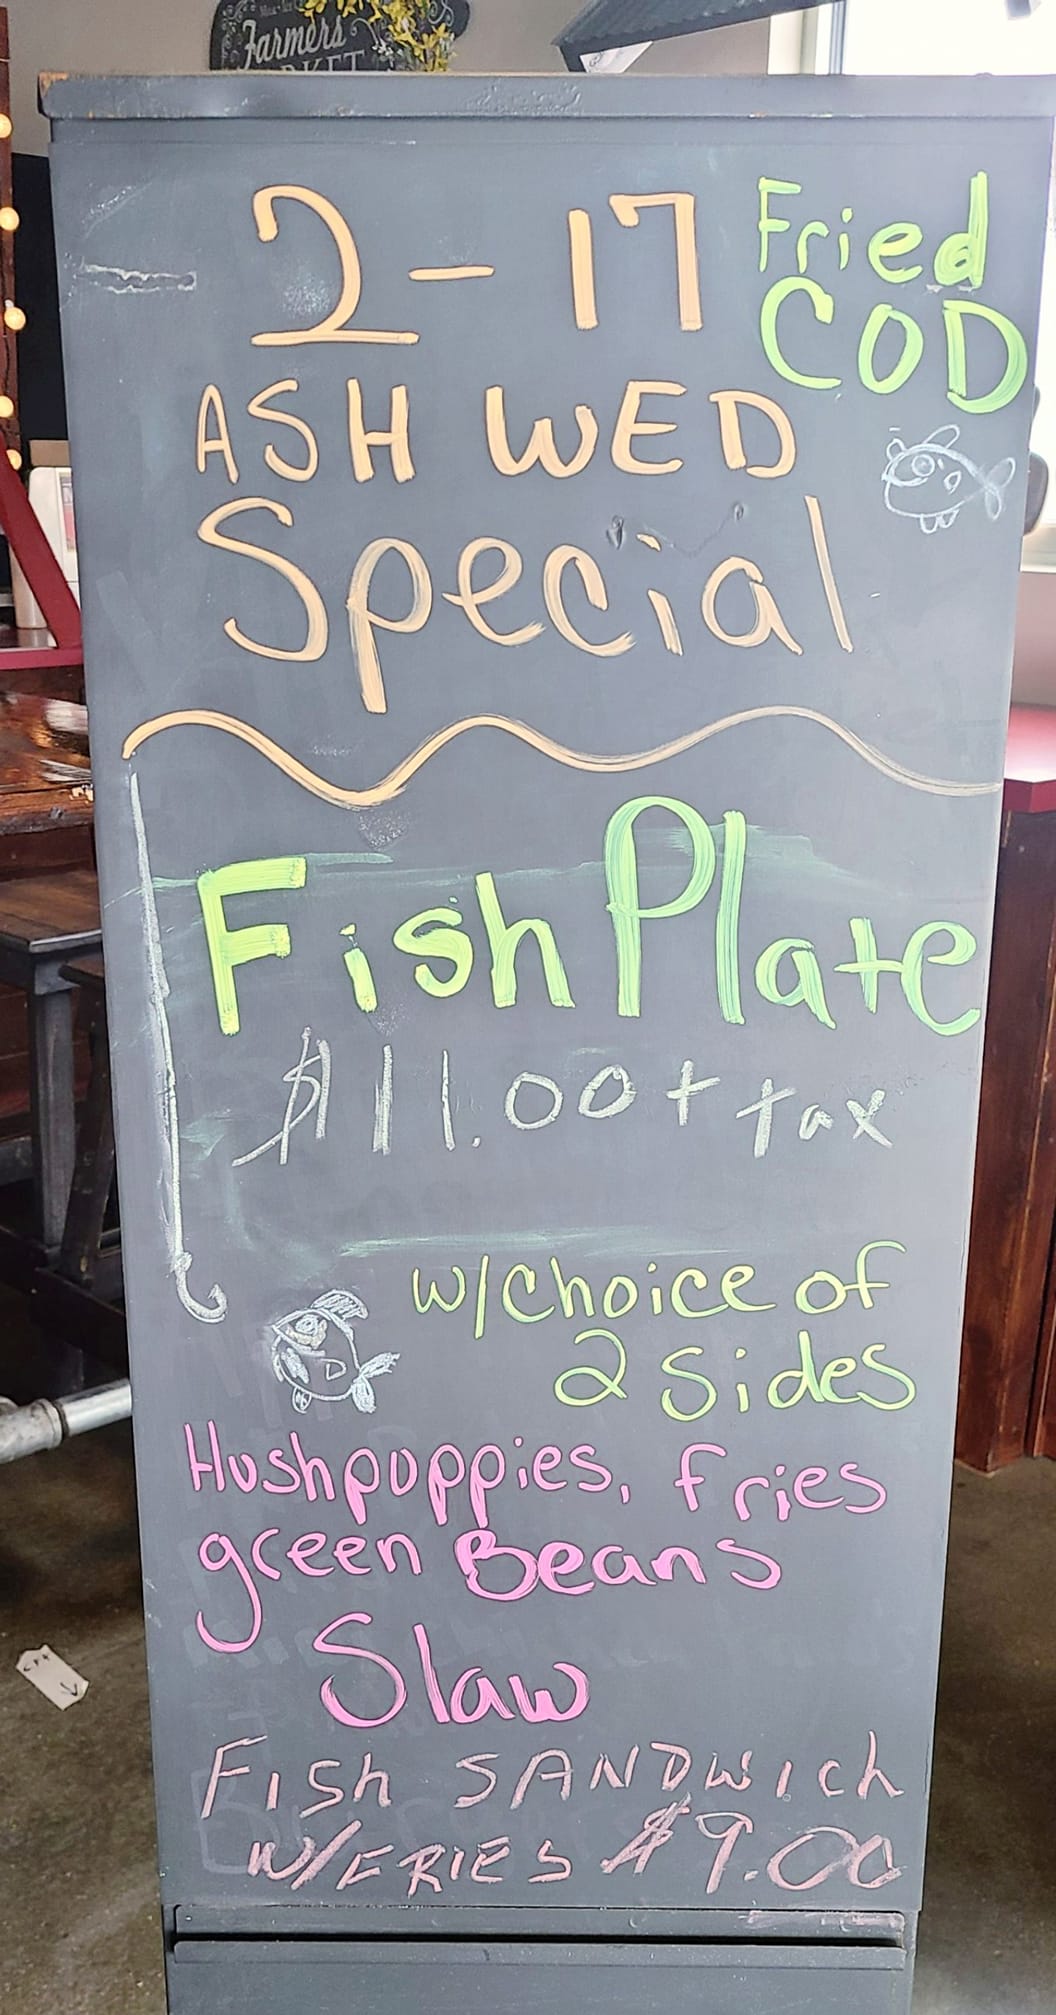 Farmers
MARKET
2-17
Fried
COD
ASH WED
Special
Fish Plate
$11.00 + tax
w/choice of
2 sides
Hushpuppies, fries
green Beans
Slaw
Fish SANDWich
W/FRIES $9.00